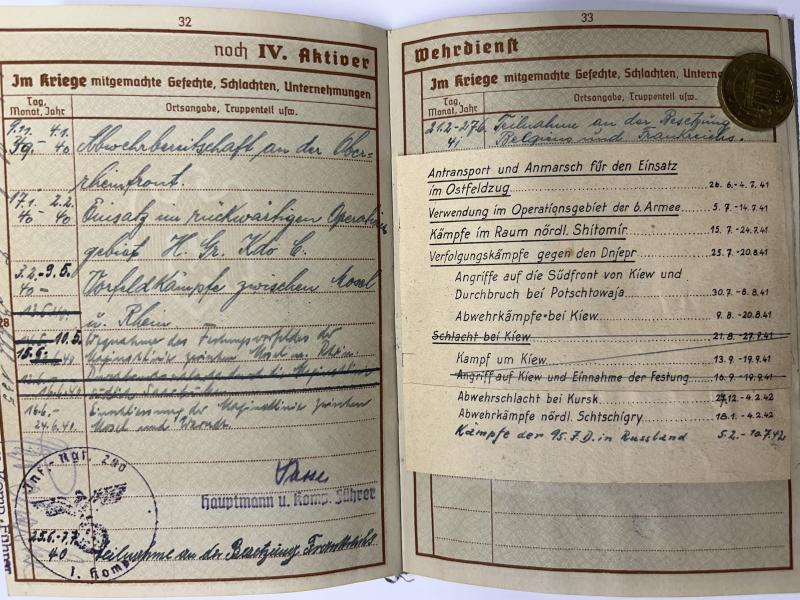 32
noch IV. Aktiver
Im Kriege mitgemachte Gefechte, Schlachten, Unternehmungen
Tag, Monat, Jahr
Ortsangabe, Truppenteil usw.
Abwehrbereitschaft an der Ober-
rheinfront.
17.1. 2.2.
40 - 40 Einsatz im rückwärtigen Operations
gebiet H. Gr. Kdo C.
3.2.-9.5.
40 - Vorfeldkämpfe zwischen Mosel
u. Rhein
10.5. Wegnahme des Festungsvorfeldes der
15.6. 40 Maginotlinie zwischen Mosel u. Rhein.
16.6.- Einschliessung der Maginotlinie zwischen
24.6.40 Mosel und
Hauptmann u. Komp. Führer
Inf. Rgt. 280
1. Komp.
25.6.-1.7.
40 Teilnahme an der Besetzung Frankreichs
33
Wehrdienst
Im Kriege mitgemachte Gefechte, Schlachten,
Tag, Monat, Jahr
Ortsangabe, Truppenteil usw.
21.2.-27.6. Teilnahme an der Besetzung
41 Belgiens und Frankreichs.
Antransport und Anmarsch für den Einsatz
im Ostfeldzug 26.6.-4.7.41
Verwendung im Operationsgebiet der 6. Armee 5.7.-14.7.41
Kämpfe im Raum nördl. Shitomir 15.7.-24.7.41
Verfolgungskämpfe gegen den Dnjepr 25.7.-20.8.41
Angriffe auf die Südfront von Kiew und
Durchbruch bei Potschtowaja 30.7.-8.8.41
Abwehrkämpfe bei Kiew 9.8.-20.8.41
Schlacht bei Kiew 21.8.-27.9.41
Kampf um Kiew 13.9.-19.9.41
Angriff auf Kiew und Einnahme der Festung 16.9.-19.9.41
Abwehrschlacht bei Kursk 27.12.-4.2.42
Abwehrkämpfe nördl. Schtschigry 18.1.-4.2.42
Kämpfe der 95. J.D. in Russland 5.2.-10.7.42